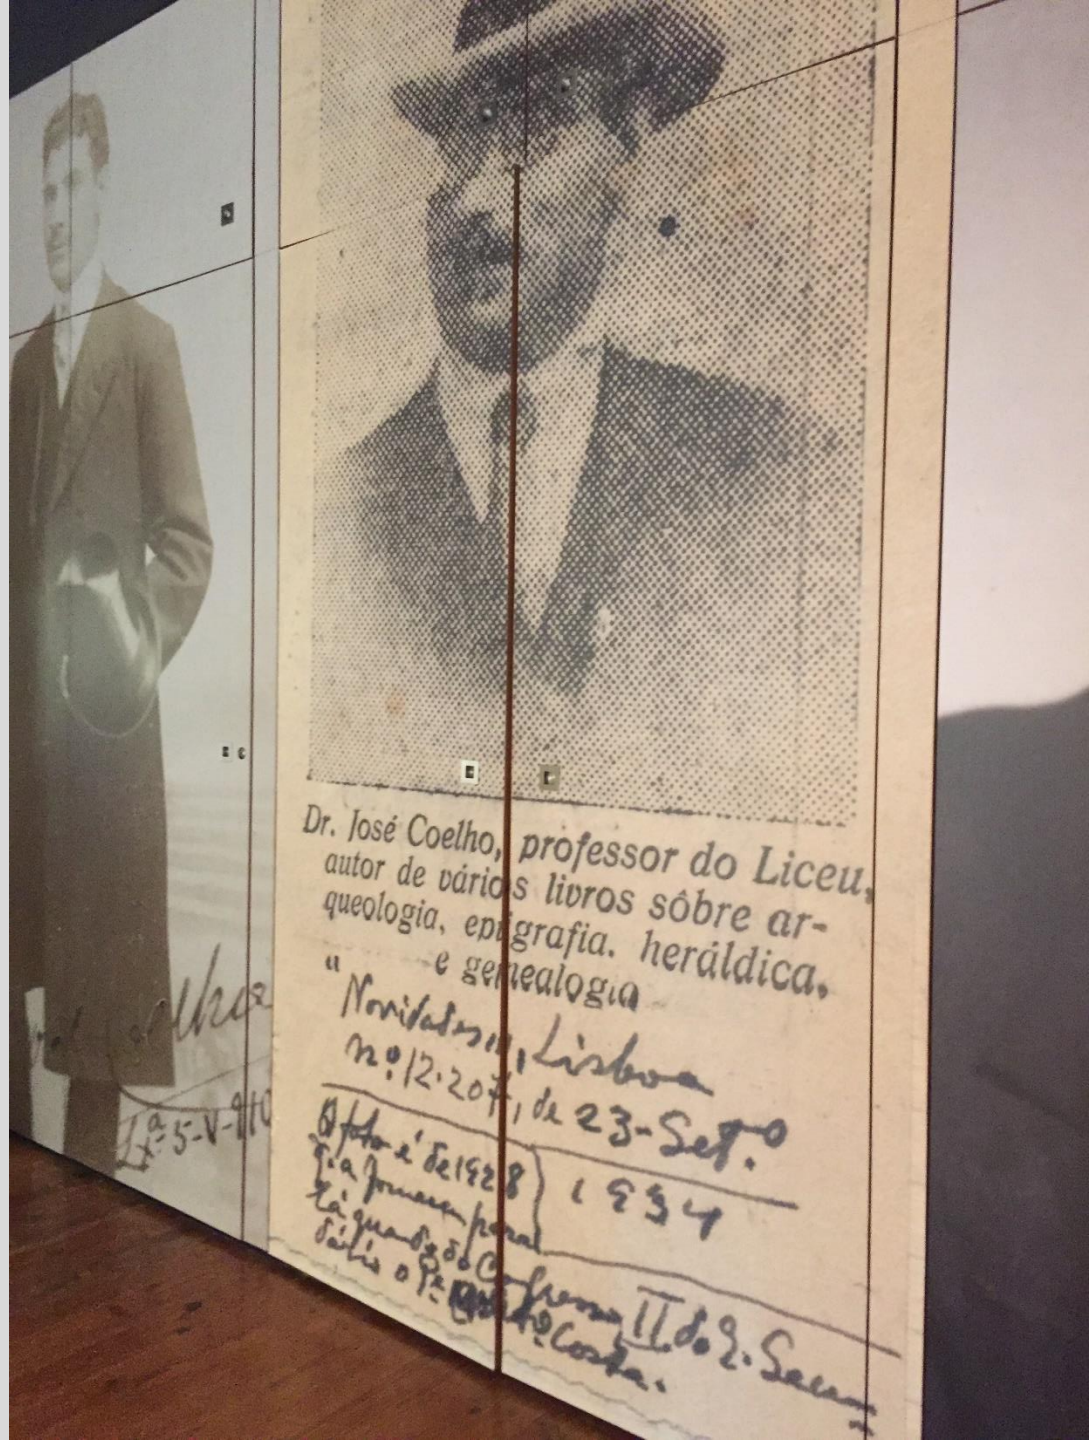 Coelho
Lxª-5-V-910
Dr. José Coelho, professor do Liceu,
autor de vários livros sôbre ar-
queologia, epigrafia. heráldica,
e genealogia
"Novidades", Lisboa
nº 12.207, de 23-Setº
1934
A foto é de 1928
para
lá quando do Congresso II do E. Secun
dário o Pe. Costa.